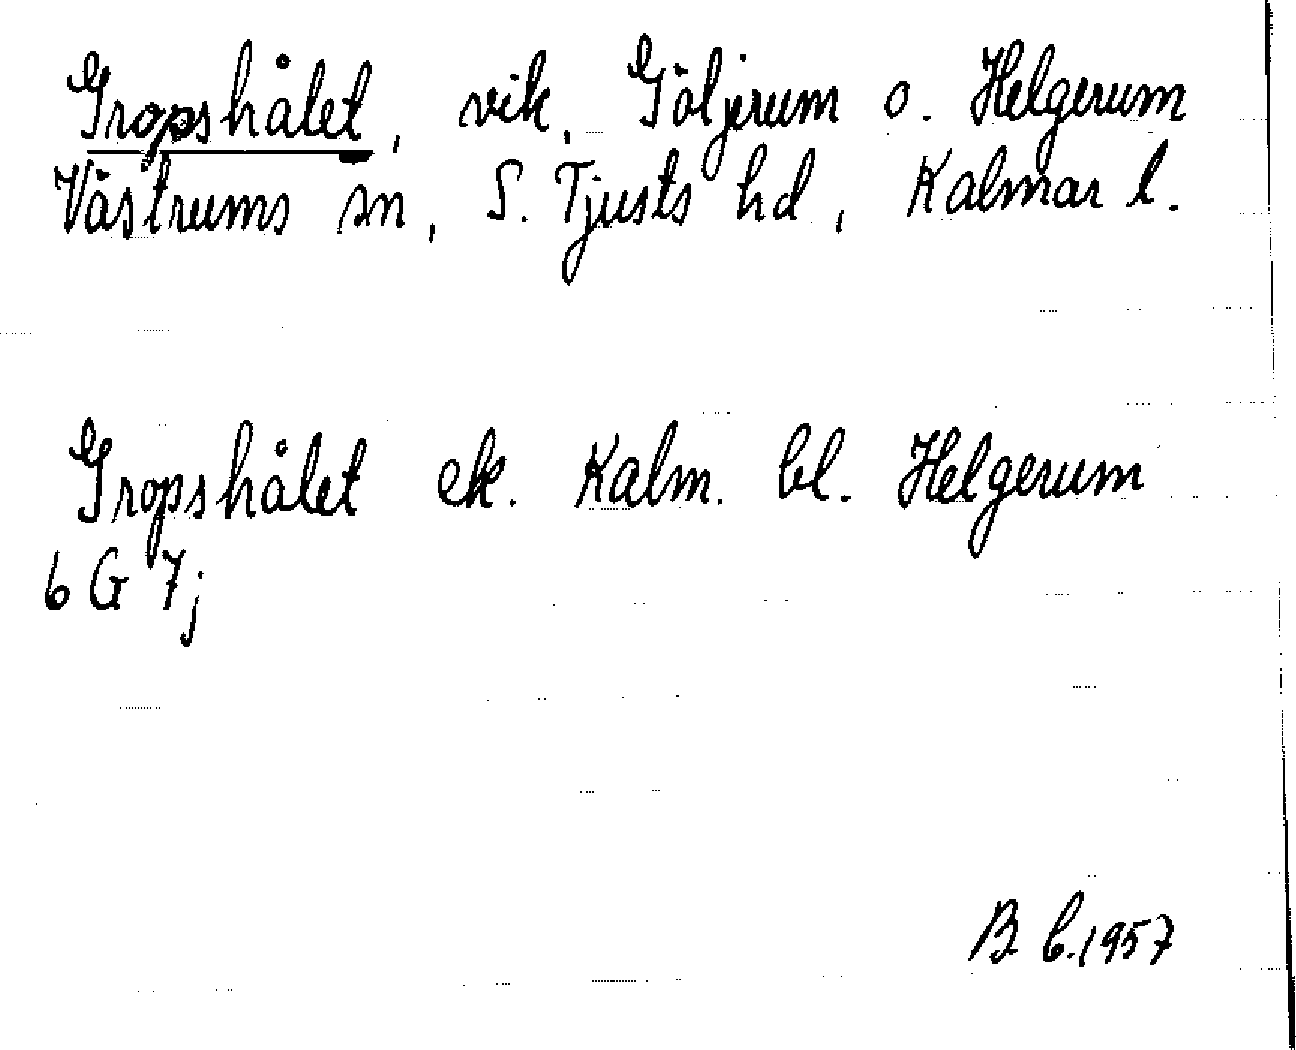 Gropshålet, vik, Göljerum o. Helgerum
Västrums sn, S. Tjusts hd, Kalmar l.
Gropshålet ek. Kalm. bl. Helgerum
6 G 7j
B. b. 1957